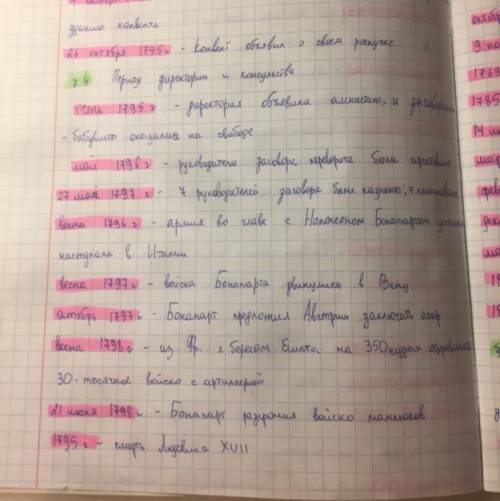 зданию конвента
26 октября 1795г - Конвент объявил о своем роспуске
Период директории и консульства
осень 1795 г - директория объявила амнистию, и заговорщики
- бабувисты оказались на свободе
май 1796 г - руководители заговора переворота были арестованы
27 мая 1797 г - 7 руководителей заговора были казнены,
весна 1796 г - армия во главе с Наполеоном Бонапартом успешно
наступала в Италии
весна 1797г - войска Бонапарта двинулись в Вену
октябрь 1797г - Бонапарт предложил Австрии заключить мир
весна 1798г - из Фр. к берегам Египта на 350 судах отправилось
30-тысячное войско с артиллерией
21 июля 1798г - Бонапарт разгромил войско мамлюков
1795 г - смерть Людовика XVII
октябр
1769
1785
14 и
фев
дек